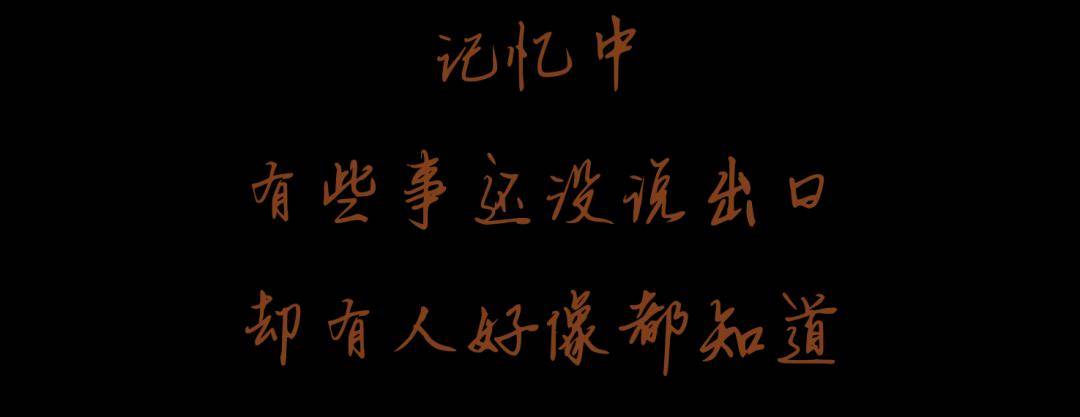 记忆中
有些事还没说出口
却有人好像都知道